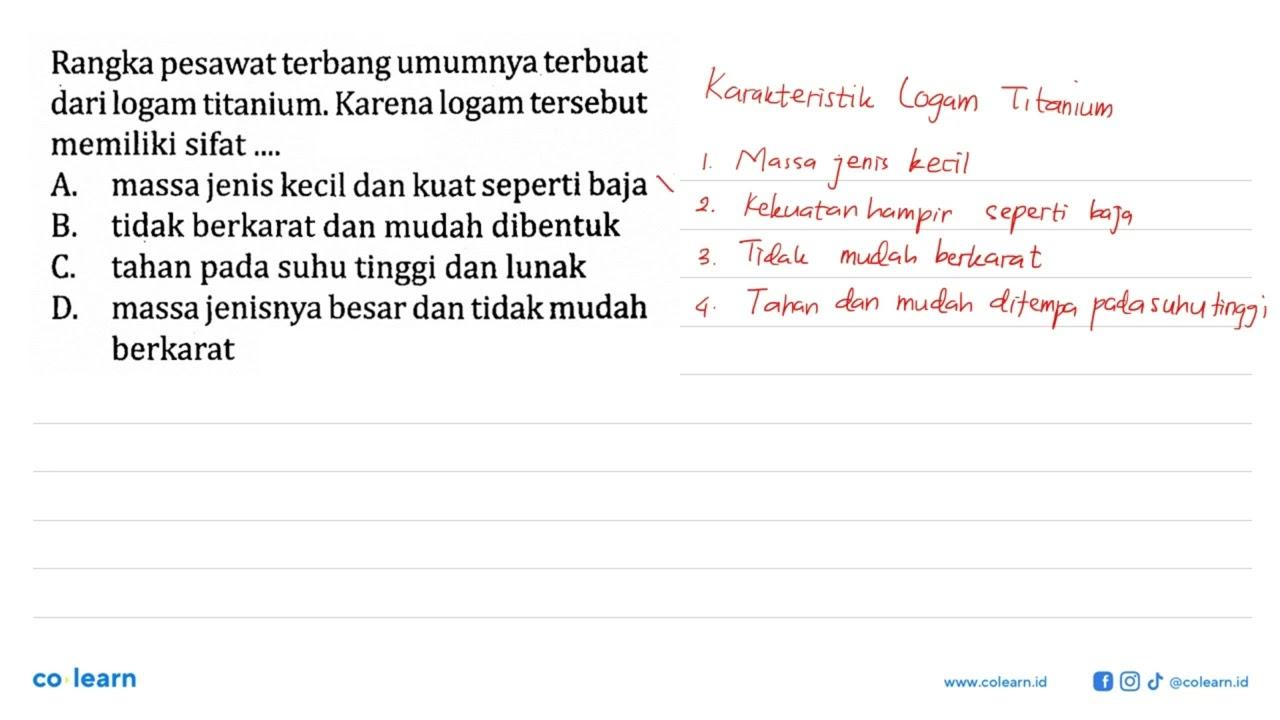 Rangka pesawat terbang umumnya terbuat
dari logam titanium. Karena logam tersebut
memiliki sifat ....
A. massa jenis kecil dan kuat seperti baja
B. tidak berkarat dan mudah dibentuk
C. tahan pada suhu tinggi dan lunak
D. massa jenisnya besar dan tidak mudah
berkarat
Karakteristik Logam Titanium
1. Massa jenis kecil
2. Kekuatan hampir seperti baja
3. Tidak mudah berkarat
4. Tahan dan mudah ditempa pada suhu tinggi
co learn
www.colearn.id
@colearn.id